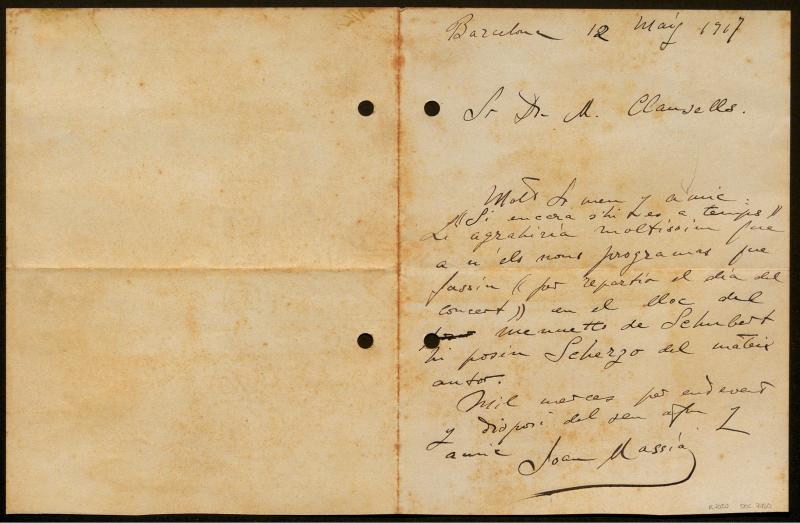 Barcelona 12 Maig 1917
Sr Dn M. Clausells.
Molt Sr meu y amic:
"Si encara s'hi es a temps"
Li agrahiría moltissim que
a n'els nous programas que
fassin (per repartir el día del
concert) en el lloc del
menuetto de Schubert
hi posin Scherzo del mateix
autor.
Mil merces per endevant
y disposi del seu afm
amic Joan Massià